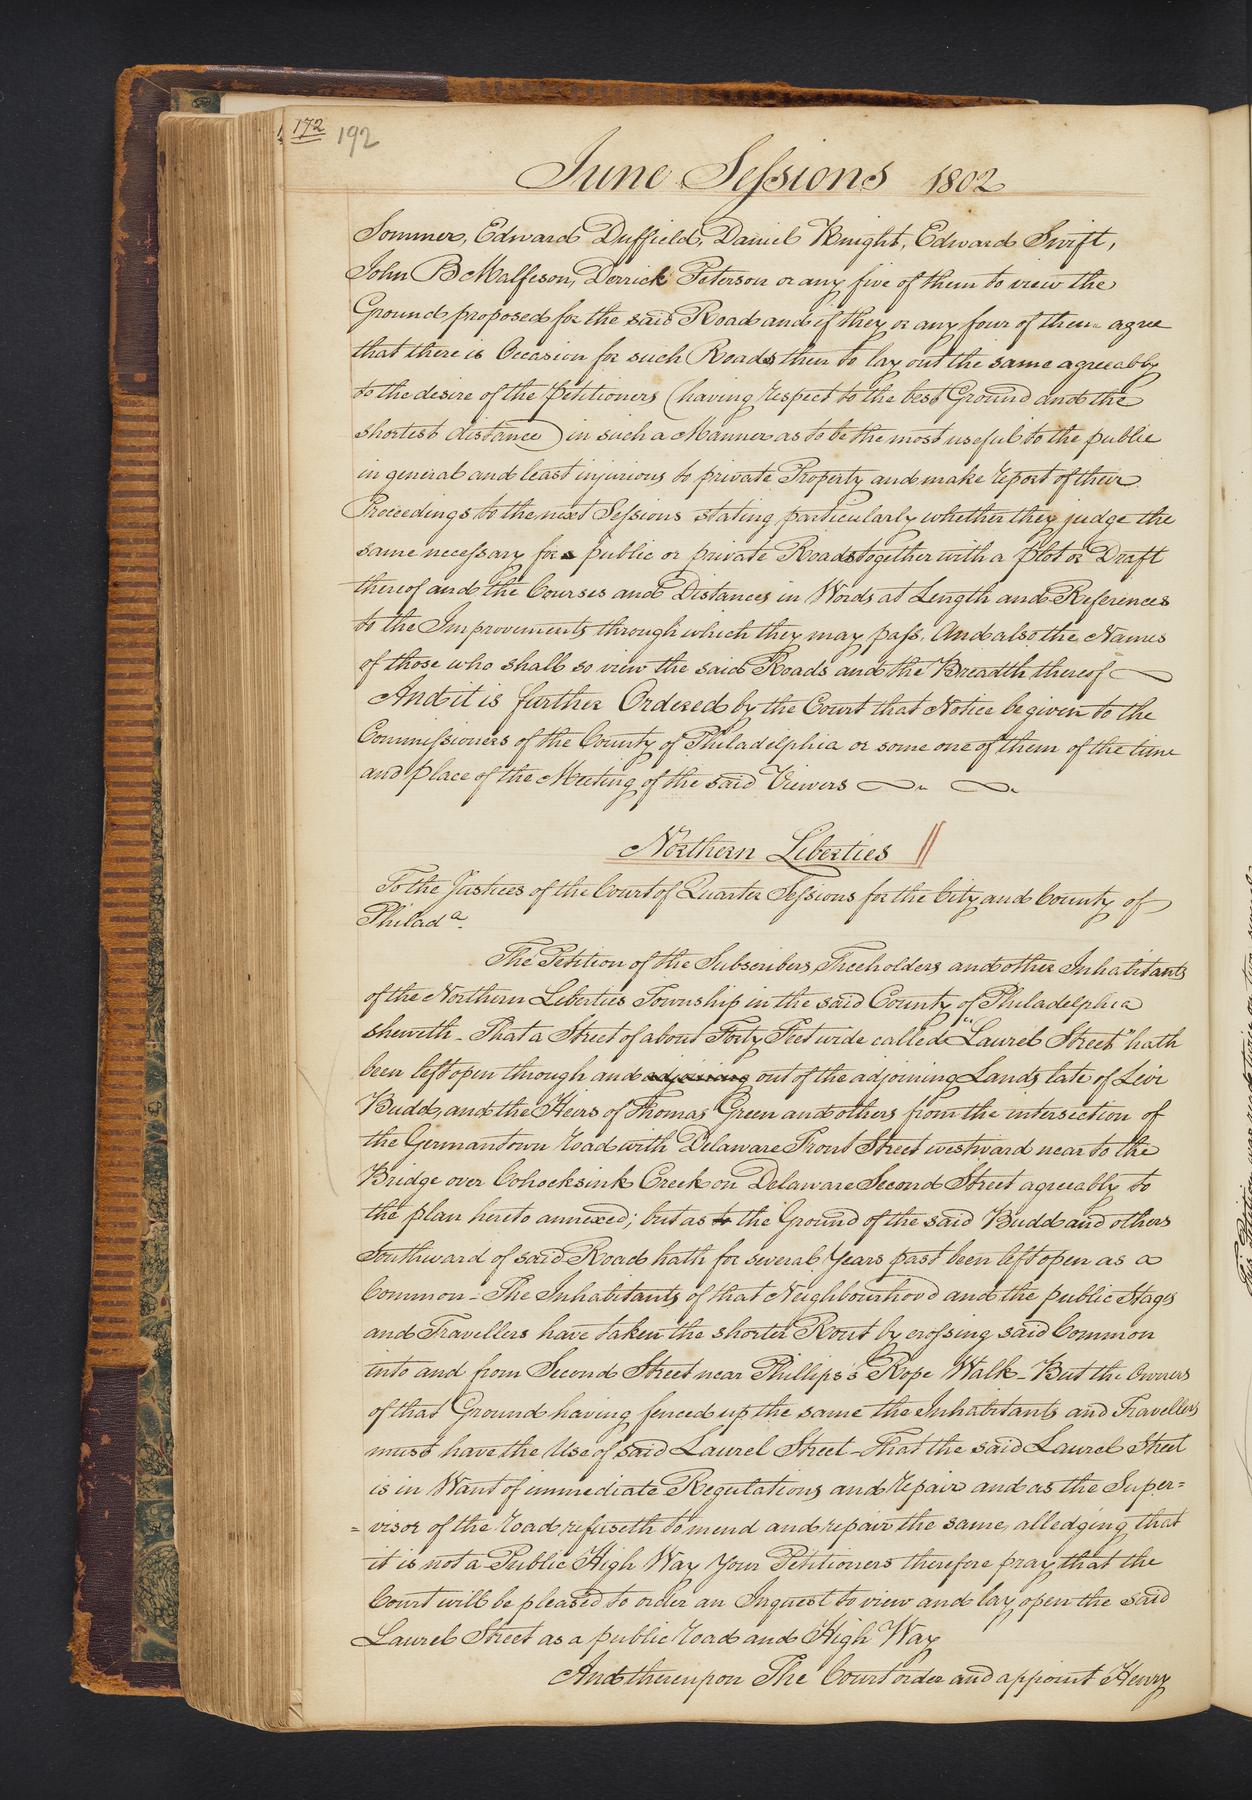 172 192
June Sessions 1802
Sommer, Edward Duffield, Daniel Knight, Edward Swift,
John B Malfeson, Derrick Peterson or any five of them to view the
Ground proposed for the said Road and if they or any four of them agree
that there is Occasion for such Roads then to lay out the same agreeably
to the desire of the Petitioners (having respect to the best Ground and the
shortest distance) in such a Manner as to be the most useful to the public
in general and least injurious to private Property and make report of their
Proceedings to the next Sessions stating particularly whether they judge the
same necessary for a public or private Roads together with a plot or Draft
thereof and the Courses and Distances in Words at Length and References
to the Improvements through which they may pass. And also the Names
of those who shall so view the said Roads and the Breadth thereof
And it is further Ordered by the Court that Notice be given to the
Commissioners of the County of Philadelphia or some one of them of the time
and place of the Meeting of the said Viewers
Northern Liberties
To the Justices of the Court of Quarter Sessions for the City and County of
Philada.
The Petition of the Subscribers, Freeholders and other Inhabitants
of the Northern Liberties Township in the said County of Philadelphia
sheweth - That a Street of about Forty Feet wide called "Laurel Street" hath
been left open through and adjoining out of the adjoining Lands late of Levi
Budd, and the Heirs of Thomas Green and others from the intersection of
the Germantown road with Delaware Front Street westward near to the
Bridge over Cohocksink Creek on Delaware Second Street agreeably to
the plan hereto annexed; but as to the Ground of the said Budd and others
Southward of said Road hath for several Years past been left open as a
Common - The Inhabitants of that Neighbourhood and the public Stages
and Travellers have taken the shorter Rout by crossing said Common
into and from Second Street near Phillips's Rope Walk - But the Owners
of that Ground having fenced up the same the Inhabitants and Travellers
must have the Use of said Laurel Street - That the said Laurel Street
is in Want of immediate Regulations and repair and as the Super=
=visor of the road refuseth to mend and repair the same, alledging that
it is not a Public High Way Your Petitioners therefore pray that the
Court will be pleased to order an Inquest to view and lay open the said
Laurel Street as a public road and High Way
And thereupon The Court order and appoint Henry